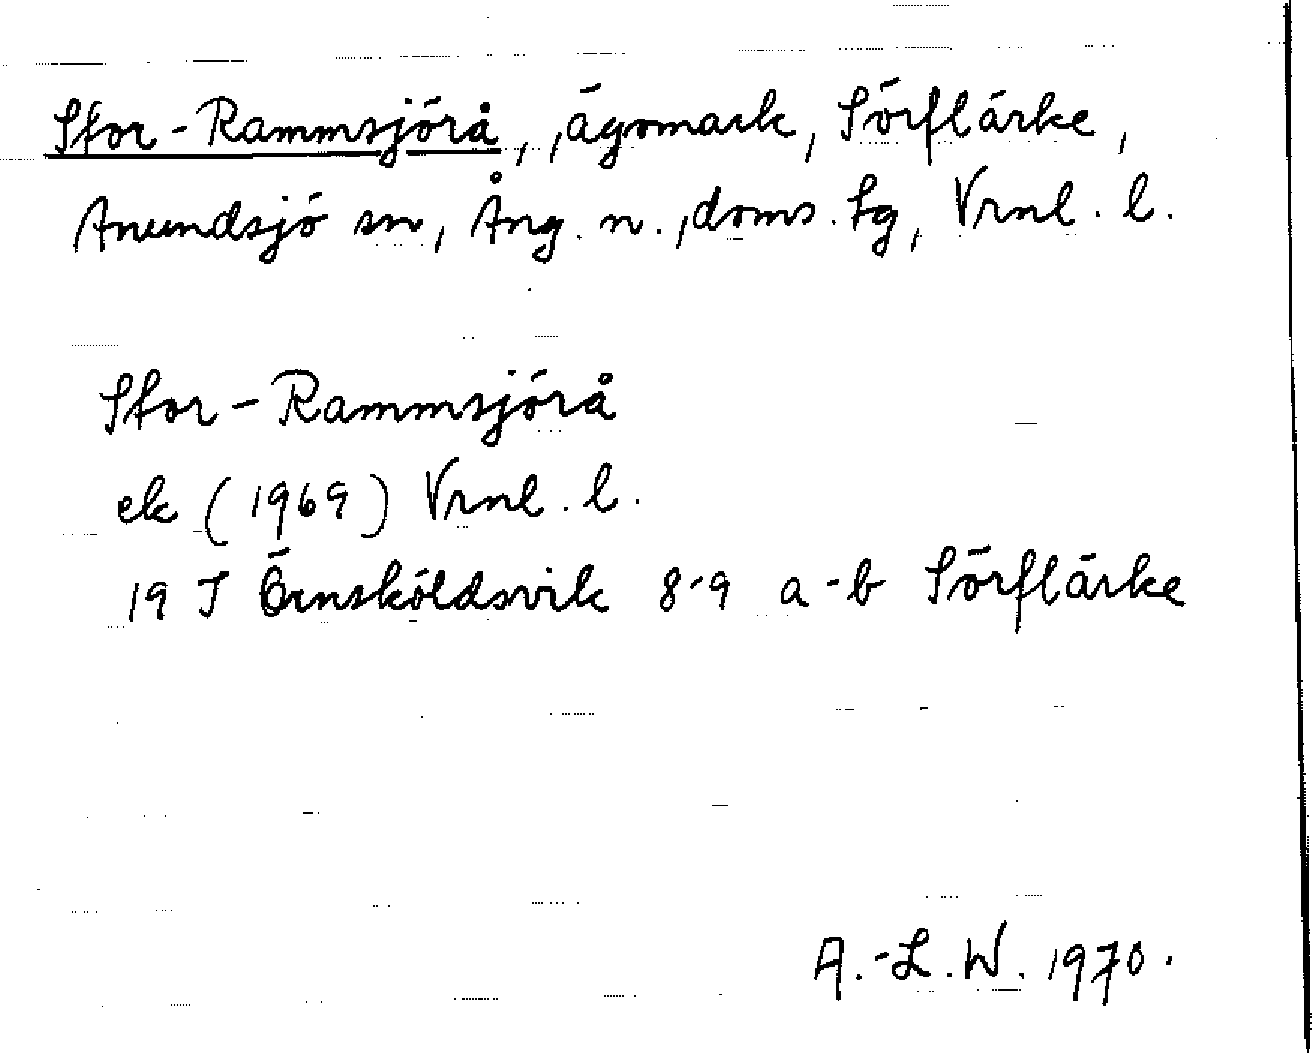 Stor-Rammsjörå, ägomark, Sörflärke,
Anundsjö sn, Ång. n., doms. tg, Vrnl. l.
Stor-Rammsjörå
ek (1969) Vrnl. l.
19 J Örnsköldsvik 8-9 a-b Sörflärke
A.-L. W. 1970.